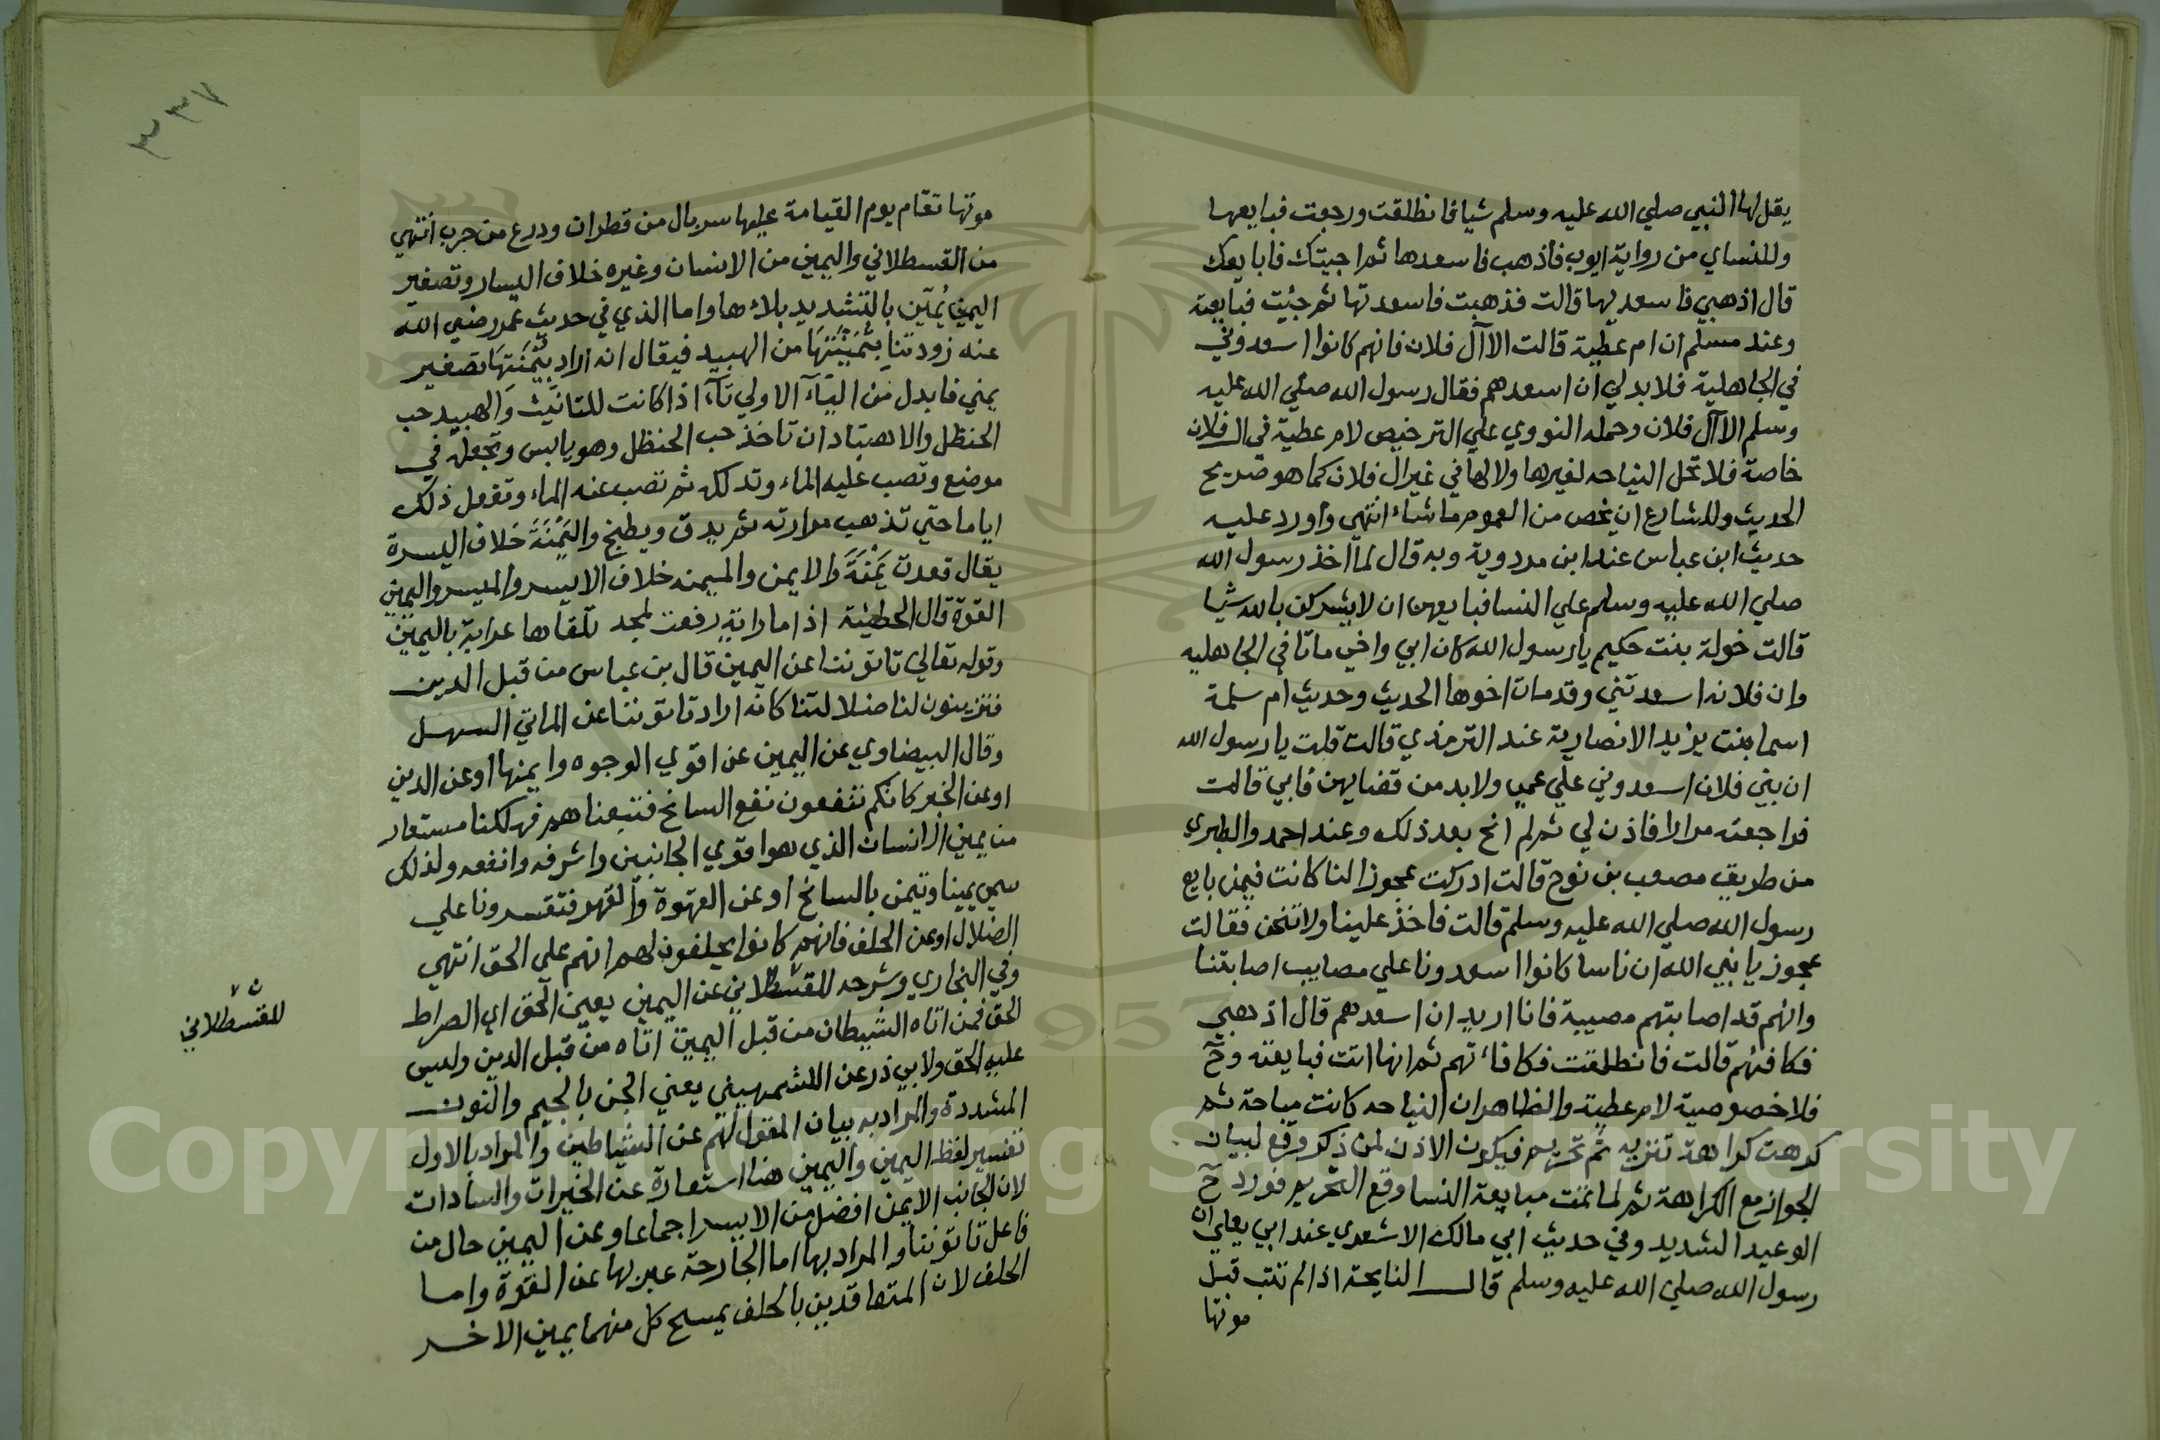 يقل لها النبي صلي الله عليه وسلم شيا فانطلقت ورجعت فبايعها
وللنساي من رواية ايوب فاذهب فاسعدها ثم اجيتك فابايعك
قال اذهبي فاسعديها قالت فذهبت فاسعدتها ثم جئت فبايعته
وعند مسلم ان ام عطية قالت الا آل فلان فانهم كانوا اسعدوني
في الجاهلية فلا بد لي ان اسعدهم فقال رسول الله صلي الله عليه
وسلم الا آل فلان وحمله النووي علي الترخيص لام عطية في ال فلان
خاصة فلا تحل النياحه لغيرها ولا لها في غير ال فلان كما هو صريح
الحديث وللشارع ان يخص من العموم ما شاء انتهي واورد عليه
حديث ابن عباس عند ابن مردوية وبه قال لما اخذ رسول الله
صلي الله عليه وسلم علي النسا فبايعهن ان لا يشركن بالله شيا
قالت خولة بنت حكيم يا رسول الله كان ابي واخي ماتا في الجاهليه
وان فلانه اسعدتني وقد مات اخوها الحديث وحديث ام سلمة
اسما بنت يزيد الانصارية عند الترمذي قالت قلت يا رسول الله
ان بني فلان اسعدوني علي عمي ولا بد من قضايهن فابي قالت
فراجعته مرارا فاذن لي ثم لم انح بعد ذلك وعند احمد والطبري
من طريق مصعب بن نوح قالت ادركت عجوز لنا كانت فيمن بايع
رسول الله صلي الله عليه وسلم قالت فاخذ علينا ولا تنحن فقالت
عجوز يا نبي الله ان ناسا كانوا اسعدونا علي مصايب اصابتنا
وانهم قد اصابتهم مصيبة فانا اريد ان اسعدهم قال اذهبي
فكافئهم قالت فانطلقت فكافاتهم ثم انها اتت فبايعته وح
فلا خصوصية لام عطية والظاهر ان النياحه كانت مباحة ثم
كرهت كراهة تنزيه ثم تحريم فيكون الاذن لمن ذكر وقع لبيان
الجواز مع الكراهة ثم لما تمت مبايعة النسا وقع التحريم فورد ح
الوعيد الشديد وفي حديث ابي مالك الاشعري عند ابي يعلي ان
رسول الله صلي الله عليه وسلم قال النايحة اذا لم تتب قبل
موتها
٣٣٧
موتها تقام يوم القيامة عليها سربال من قطران ودرع من جرب انتهي
من القسطلاني واليمين من الانسان وغيره خلاف اليسار وتصغير
اليمين يُمَيّن بالتشديد بلا ها واما الذي في حديث عمر رضي الله
عنه زودتنا بِثُمَيْنَتَهَا من الهبيد فيقال انه اراد بِيُمْنَتَهَا تصغير
يمني فابدل من الياء الاولي تاآ اذا كانت للتانيث والهبيد حب
الحنظل والاهتباد ان تاخذ حب الحنظل وهو يابس وتجعله في
موضع وتصب عليه الماء وتدلكه ثم تصب عنه الماء وتفعل ذلك
اياما حتي تذهب مرارته ثم يدق ويطبخ واليَمْنَة خلاف اليسرة
يقال قعدت يَمْنَةَ والايمن والميمنه خلاف الايسر والميسر واليمين
القوة قال الحطيئة اذا ما راية رفعت لمجد تلقاها عرابة باليمين
وقوله تعالي تاتوننا عن اليمين قال بن عباس من قبل الدين
فتزينون لنا ضلالتنا كانه اراد تاتوننا عن الماتي السهل
وقال البيضاوي عن اليمين عن اقوي الوجوه وايمنها او عن الدين
او عن الخير كانكم تنفعون نفع السانح فتتبعناهم فهلكنا مستعار
من يمين الانسان الذي هو اقوي الجانبين واشرفه وانفعه ولذلك
سمي يمينا وتيمن بالسانح او عن القهوة والقهر فتقسرونا علي
الضلال او عن الحلف فانهم كانوا يحلفون لهم انهم علي الحق انتهي
وفي البخاري وشرحه للقسطلاني عن اليمين يعني الحق اي الصراط
الحق فمن اتاه الشيطان من قبل اليمين اتاه من قبل الدين ولبس
عليه الحق ولابي ذر عن الكشمهيني يعني الجن بالجيم والنون
المشددة والمراد به بيان المقول لهم عن الشياطين والمراد بالاول
تفسير لفظ اليمين واليمين هنا استعارة عن الخيرات والسادات
لان الجانب الايمن افضل من الايسر اجماعا وعن اليمين حال من
فاعل تاتوننا والمراد بها اما الجارحة عبر بها عن القوة واما
الحلف لان المتعاقدين بالحلف يمسح كل منهما يمين الاخر
للقسطلاني
Copyright © King Saud University
1957